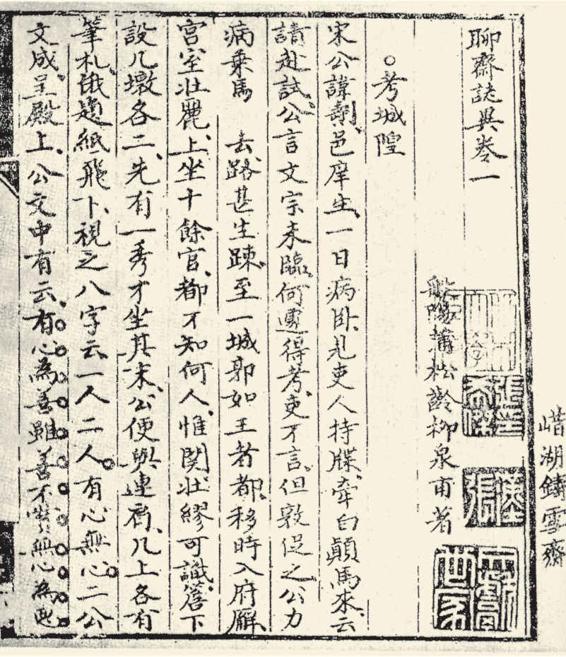 崉湖鑄雪齋
聊齋誌異卷一
般陽蒲松齡柳泉甫著
○考城隍
宋公諱燾邑庠生一日病臥見吏人持牒牽白顛馬來云
請赴試公言文宗未臨何遽得考吏不言但敦促之公力
病乘馬 去路甚生踈至一城郭如王者都移時入府廨
宮室壯麗上坐十餘官都不知何人惟関壯繆可識簷下
設几墩各二先有一秀才坐其末公便與連肩几上各有
筆札俄題紙飛下視之八字云一人二人有心無心二公
文成呈殿上公文中有云有心為善雖善不賞無心為